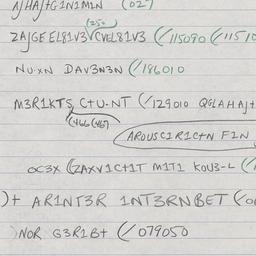 (027
(250
ZAJGE EL81V3 CVEL81V3 (/115090 (/11510
NU.XN DAV3N3N (/186010
M3R1KTS, C+U.NT (/129010 QGLAHAJ+
(466 (467
AROUSC1R1C+N F1N
OC3X (2AXV1C+1T M1T1 KOU3-L (/
)+ AR1NT3R 1NT3RNBET (/0
NOR G3R1B+ (/079050